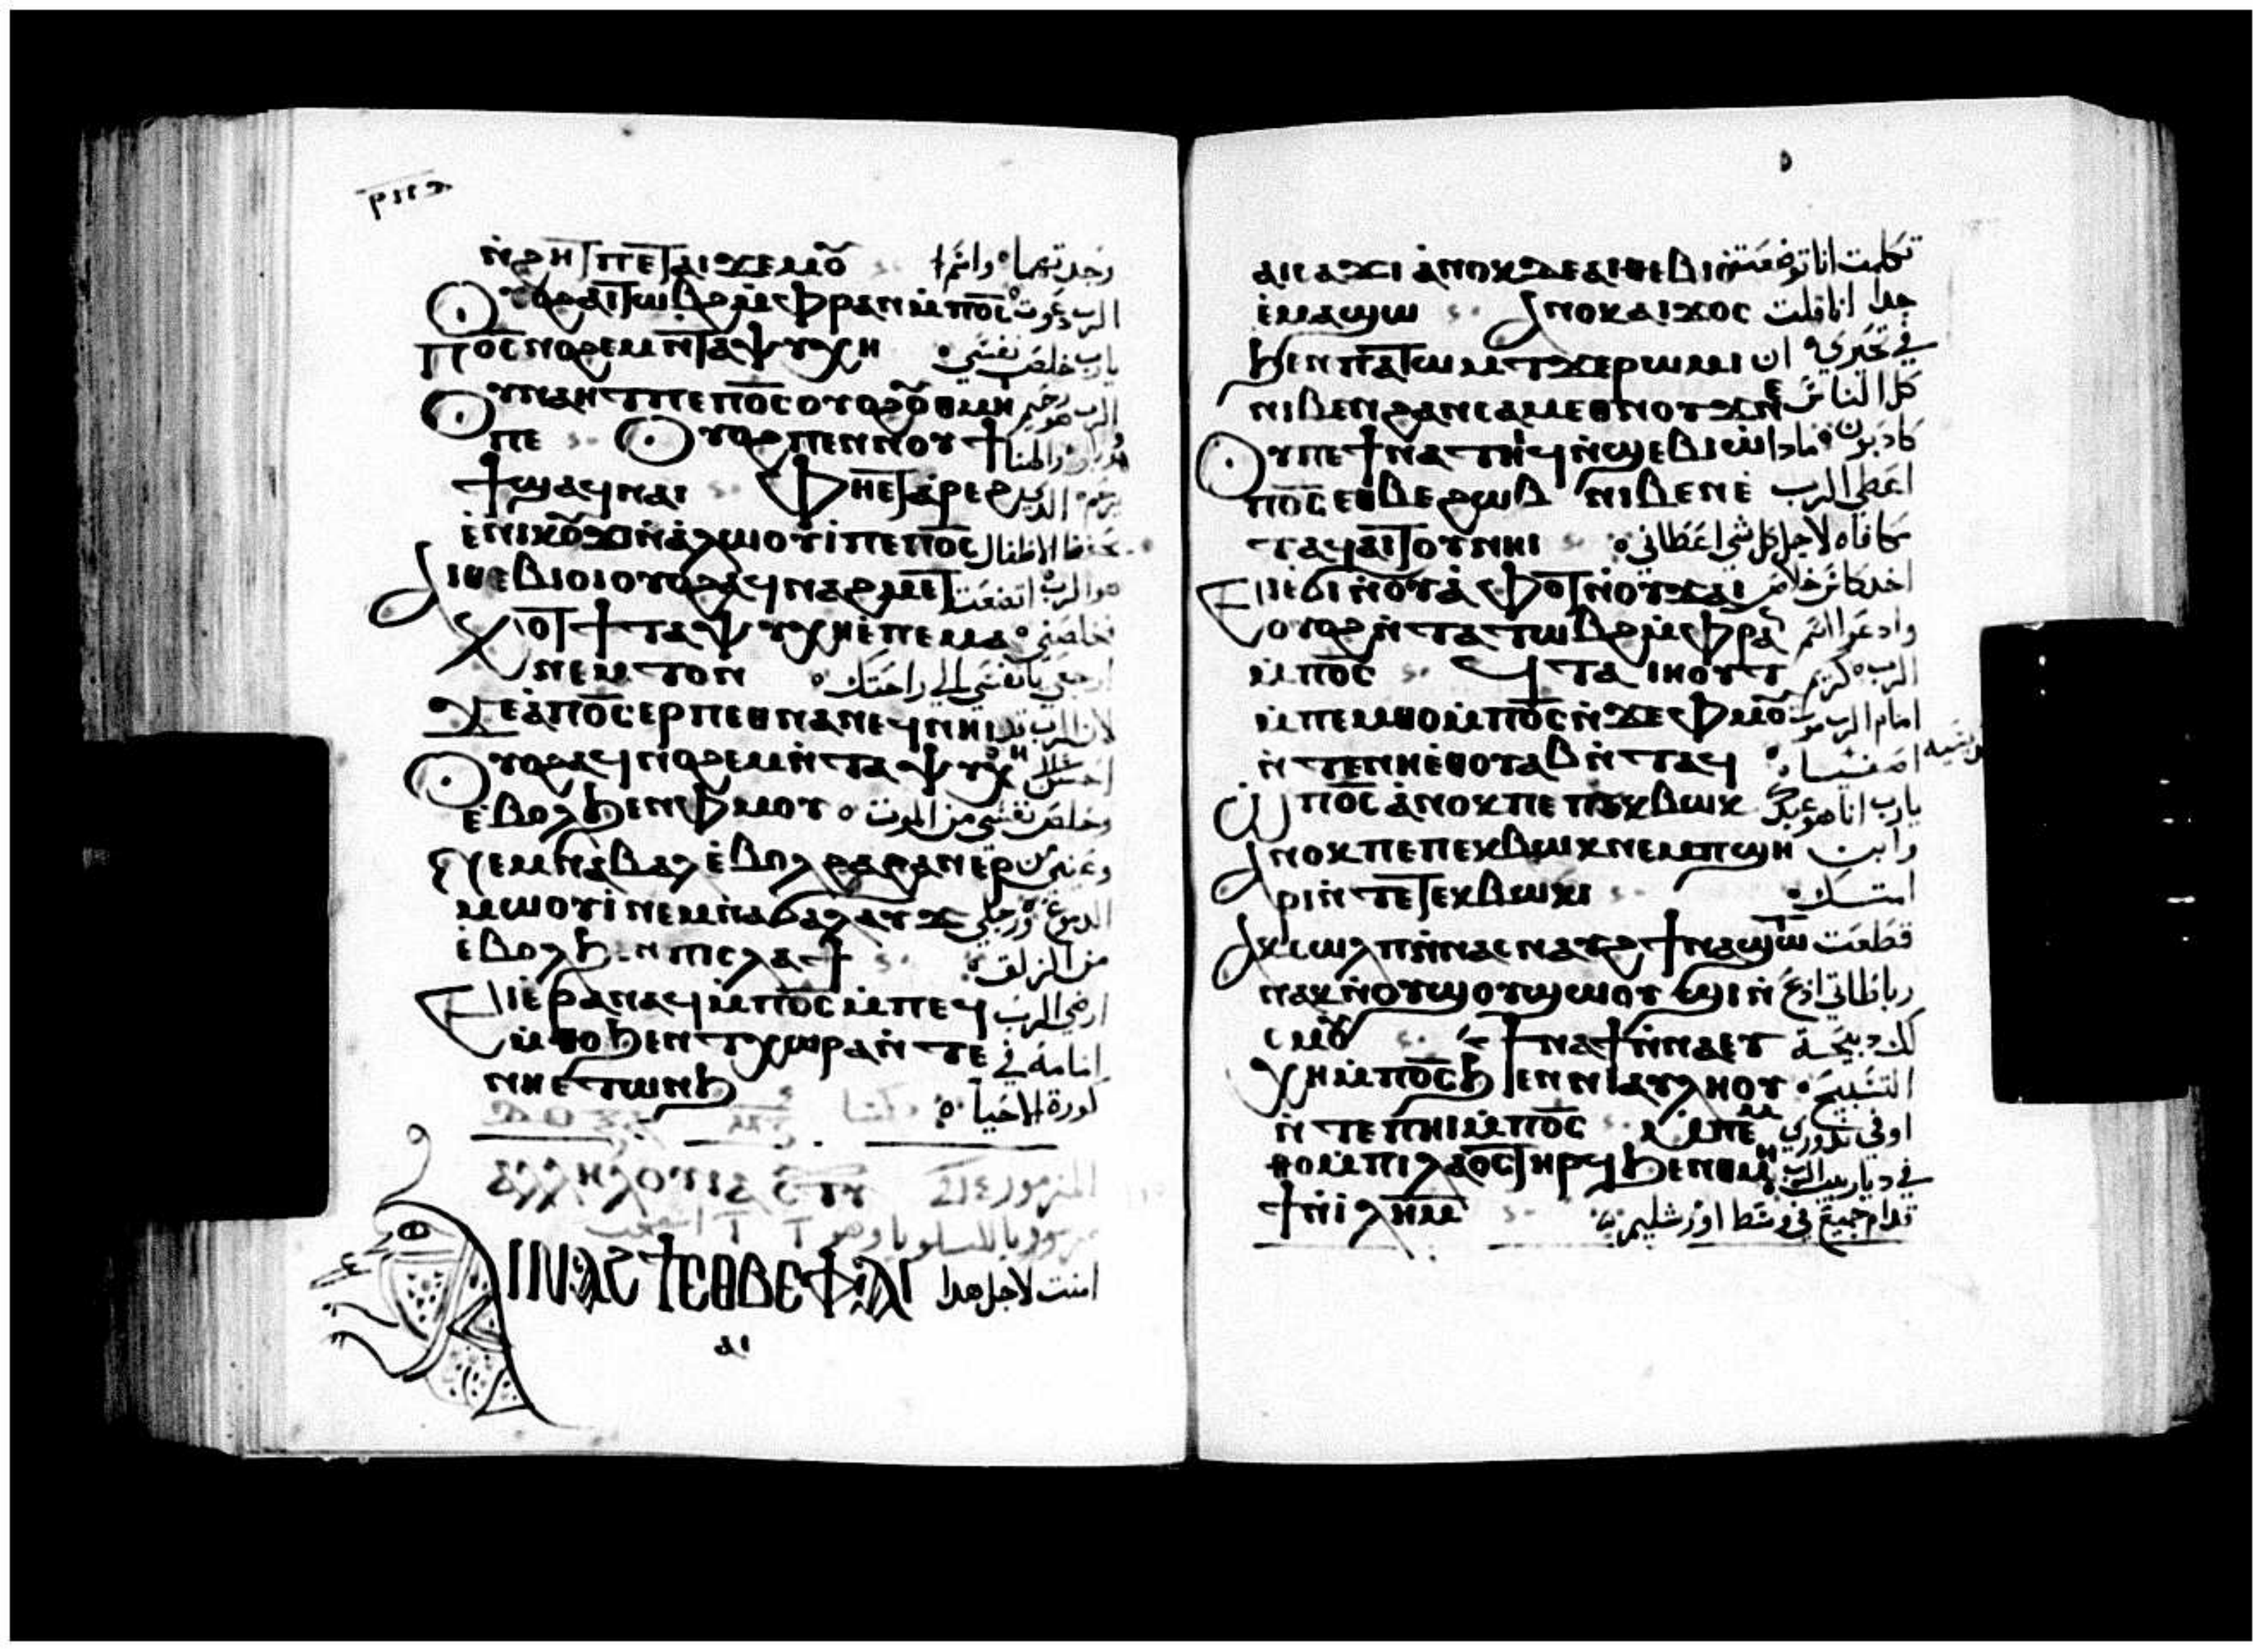 ⲛ̇ϩⲏⲧ ⲡⲉⲧⲁⲓϫⲉⲙⲟ̄ وجدتهما واسم
Ⲟⲩⲟϩ ⲁⲓⲧⲱⲃϩ ⲙ̇ⲫⲣⲁⲛ ⲙ̇ⲡⲟ̅ⲥ̅ الرب دعوت
Ⲡⲟ̅ⲥ̅ ⲛⲟϩⲉⲙ ⲛ̇ⲧⲁⲯⲩⲭⲏ يارب خلص نفسي
Ⲟⲩⲛⲁⲏⲧ ⲡⲉ ⲡⲟ̅ⲥ̅ ⲟⲩⲟϩ ⲟ̄ⲑⲙⲏⲓ الرب هو رحيم
ⲡⲉ Ⲟⲩⲟϩ ⲡⲉⲛⲛⲟⲩϯ والهنا
ϯϣⲁϥⲛⲁⲓ Ⲫⲏⲉⲧⲁ̇ⲣⲉϩ يرحم الذي
ⲉ̇ⲛⲓⲕⲟ̄ϫⲓ ⲛ̇ⲁ̇ⲗⲱⲟⲩⲓ̇ ⲡⲉ ⲡⲟ̅ⲥ̅ يحفظ الاطفال
Ⲁⲓⲑⲉⲃⲓⲟⲓ ⲟⲩⲟϩ ⲁϥⲛⲁϩⲙⲉⲧ هو الرب اتضعت
Ⲕⲟⲧϯ ⲧⲁⲯⲩⲭⲏ ⲉ̇ⲡⲉⲙⲁ فخلصني
ⲛⲉⲙⲧⲟⲛ ارجعي يا نفسي الي راحتك
Ϫⲉ ⲁ̇ⲡⲟ̅ⲥ̅ ⲉⲣⲡⲉⲑⲛⲁⲛⲉϥ ⲛⲏⲓ لان الرب قد
Ⲟⲩⲟϩ ⲁϥⲛⲟϩⲉⲙ ⲛ̇ⲧⲁⲯⲩⲭⲏ احسن الي
ⲉ̇ⲃⲟⲗϧⲉⲛ ⲫⲙⲟⲩ وخلص نفسي من الموت
Ⲛⲉⲙ ⲛⲁⲃⲁⲗ ⲉ̇ⲃⲟⲗϩⲁ ϩⲁⲛⲉⲣ وعيني من
ⲙⲱⲟⲩⲓ̇ ⲛⲉⲙ ⲛⲁϭⲁⲗⲁⲩϫ الدموع ورجلي
ⲉ̇ⲃⲟⲗϧⲉⲛ ⲡⲓⲥⲗⲁϯ من الزلق
Ⲉⲓⲉ̇ⲣⲁⲛⲁϥ ⲙ̇ⲡⲟ̅ⲥ̅ ⲙ̇ⲡⲉϥ ارضي الرب
ⲙ̇ⲑⲟ ϧⲉⲛ ⲧⲭⲱⲣⲁ ⲛ̇ⲧⲉ امامه في
ⲛⲏⲉⲧⲱⲛϧ كورة الاحياء
ⲁⲗⲗⲏⲗⲟⲩⲓⲁ المزمور
Ⲁⲓⲛⲁϩϯ ⲉⲑⲃⲉⲫⲁⲓ امنت لاجل هذا
ⲁⲓ
ⲁⲓⲥⲁϫⲓ ⲁ̇ⲛⲟⲕ ⲇⲉ ⲁⲓⲑⲉⲃⲓⲟ̇ تكلمت انا توضعت
ⲉ̇ⲙⲁϣⲱ Ⲁⲛⲟⲕ ⲁⲓϫⲟⲥ جدا انا قلت
ϧⲉⲛ ⲡⲁⲧⲱⲙⲧ ϫⲉ ⲣⲱⲙⲓ في تحيري ان
ⲛⲓⲃⲉⲛ ϩⲁⲛⲥⲁⲙⲉⲑⲛⲟⲩϫ ⲛⲉ كل الناس
Ⲟⲩ ⲡⲉϯⲛⲁⲧⲏⲓϥ ⲛ̇ϣⲉⲃⲓⲱ̇ كادبون فمادا
ⲡⲟ̅ⲥ̅ ⲉⲑⲃⲉ ϩⲱⲃ ⲛⲓⲃⲉⲛ ⲉ̇ اعطي الرب
ⲧⲁϥⲁⲓⲧⲟⲩ ⲛⲏⲓ مكافاه لاجل كل شي اعطاني
Ⲉⲓⲉ̇ϭⲓ ⲛ̇ⲟⲩⲁ̇ⲫⲟⲧ ⲛ̇ⲟⲩϫⲁⲓ اخد كاس خلاص
ⲟⲩⲟϩ ⲛ̇ⲧⲁⲧⲱⲃϩ ⲙ̇ⲫⲣⲁ وادعوا اسم
ⲙ̇ⲡⲟ̅ⲥ̅ Ϥⲧⲁⲓⲏⲟⲩⲧ الرب كريم
ⲙ̇ⲡⲉⲙⲑⲟ ⲙ̇ⲡⲟ̅ⲥ̅ ⲛ̇ϫⲉ ⲫⲙⲟ̄ امام الرب موت
ⲛ̇ⲧⲉ ⲛⲏⲉ̇ⲑⲟⲩⲁⲃ ⲛ̇ⲧⲁϥ
Ⲱ ⲡⲟ̅ⲥ̅ ⲁ̇ⲛⲟⲕ ⲡⲉ ⲡⲉⲕⲃⲱⲕ يارب انا هو عبدك
Ⲁⲛⲟⲕ ⲡⲉ ⲡⲉⲕⲃⲱⲕ ⲛⲉⲙ ⲡϣⲏ وابن
ⲣⲓ ⲛ̇ⲧⲉ ⲧⲉⲕⲃⲱⲕⲓ امتك
Ⲁⲕⲥⲱⲗⲡ ⲛ̇ⲛⲁⲥⲛⲁⲩϩ ϯⲛⲁϣⲱ̅ⲧ̅ قطعت
ⲛⲁⲕ ⲛ̇ⲟⲩϣⲟⲩϣⲱⲟⲩϣⲓ ⲛ̇ رباطاتي ادبح
ⲥⲙⲟⲩ ϯⲛⲁϯ ⲛ̇ⲛⲁⲉⲩ لك دبيحة
ⲭⲏ ⲙ̇ⲡⲟ̅ⲥ̅ ϧⲉⲛ ⲛⲓⲁⲩⲗⲏⲟⲩ التسبيح
ⲛ̇ⲧⲉ ⲡⲏⲓ ⲙ̇ⲡⲟ̅ⲥ̅ ⲙ̇ⲡⲉⲙ اوفي ندوري
ⲑⲟ ⲙ̇ⲡⲓⲗⲁⲟⲥ ⲧⲏⲣϥ ϧⲉⲛ ⲑⲙⲏ في ديار بيت الرب
ϯ ⲛ̇ⲓ̇ⲗ̅ⲏ̅ⲙ̅ قدام جميع في وسط اورشليم